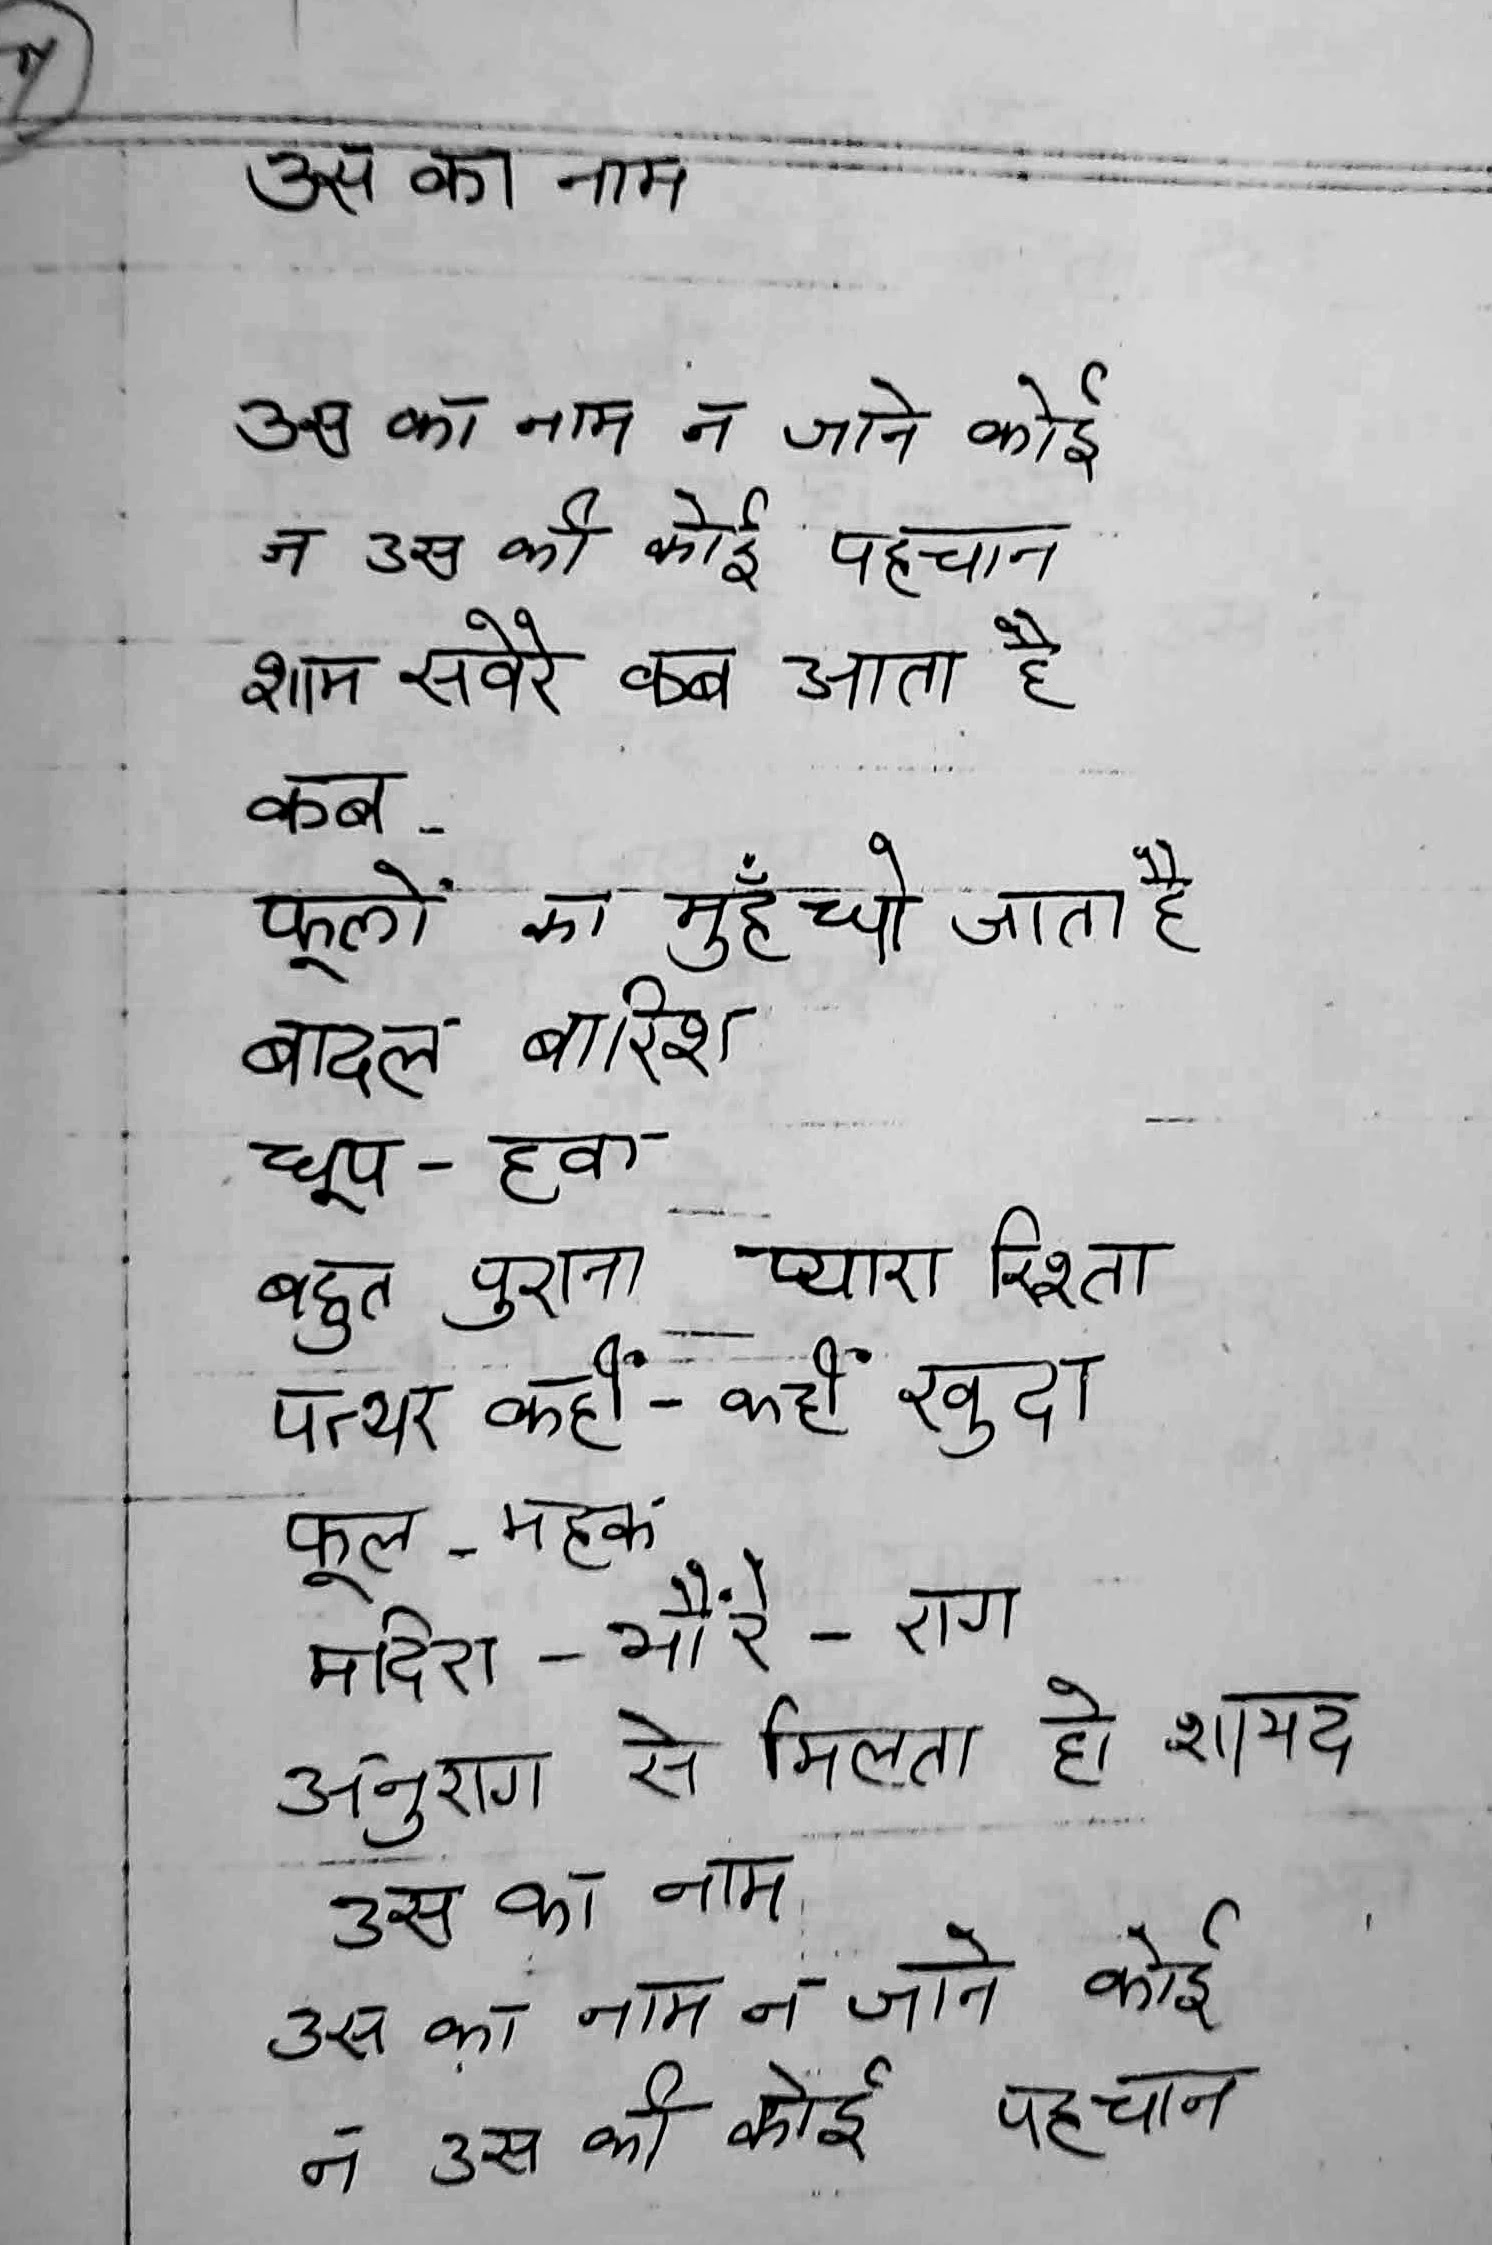 उस का नाम
उस का नाम न जाने कोई
न उस की कोई पहचान
शाम सवेरे कब आता है
कब -
फूलों का मुहँ धो जाता है
बादल बारिश
धूप - हवा
बहुत पुराना प्यारा रिश्ता
पत्थर कहीं - कहीं खुदा
फूल - महक
मदिरा - भौंरे - राग
अनुराग से मिलता हो शायद
उस का नाम
उस का नाम न जाने कोई
न उस की कोई पहचान